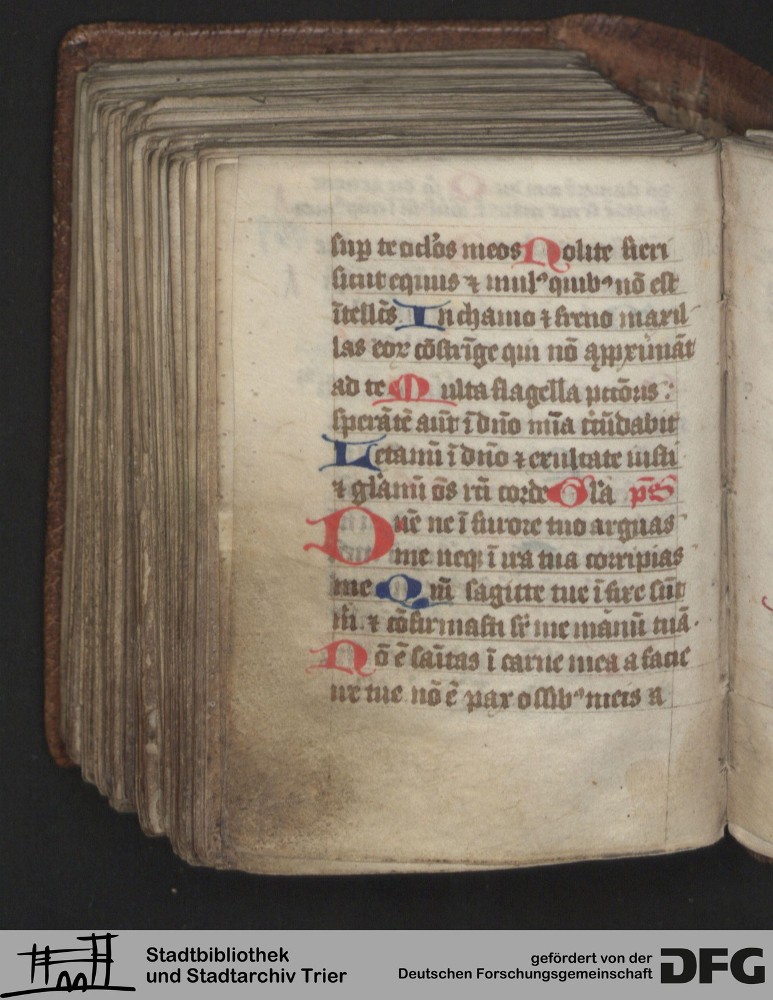 sup̱ te oclōs meos Nolite fieri
sicut equus ⁊ mulꝰ quibꝰ nō est
ītellc̄s In chamo ⁊ freno maxil
las eoꝝ cōstrīge qui nō apꝓximāt
ad te Multa flagella pcc̄oris :
sperātē aūt ī dn̄o mīa cīcūdabit
Letamī ī dn̄o ⁊ exultate iusti
⁊ glamī ōs rc̄i corde Glā ps̄
Dn̄e ne ī furore tuo arguas
me neqꝫ ī ira tua corripias
me Qm̄ sagitte tue īfixe sūt
m̄ ⁊ cōfirmasti sr̄ me manū tuā.
Nō ē sāītas ī carne mea a facie
ire tue nō ē pax ossibꝰ meis a
Stadtbibliothek
und Stadtarchiv Trier
gefördert von der
Deutschen Forschungsgemeinschaft
DFG